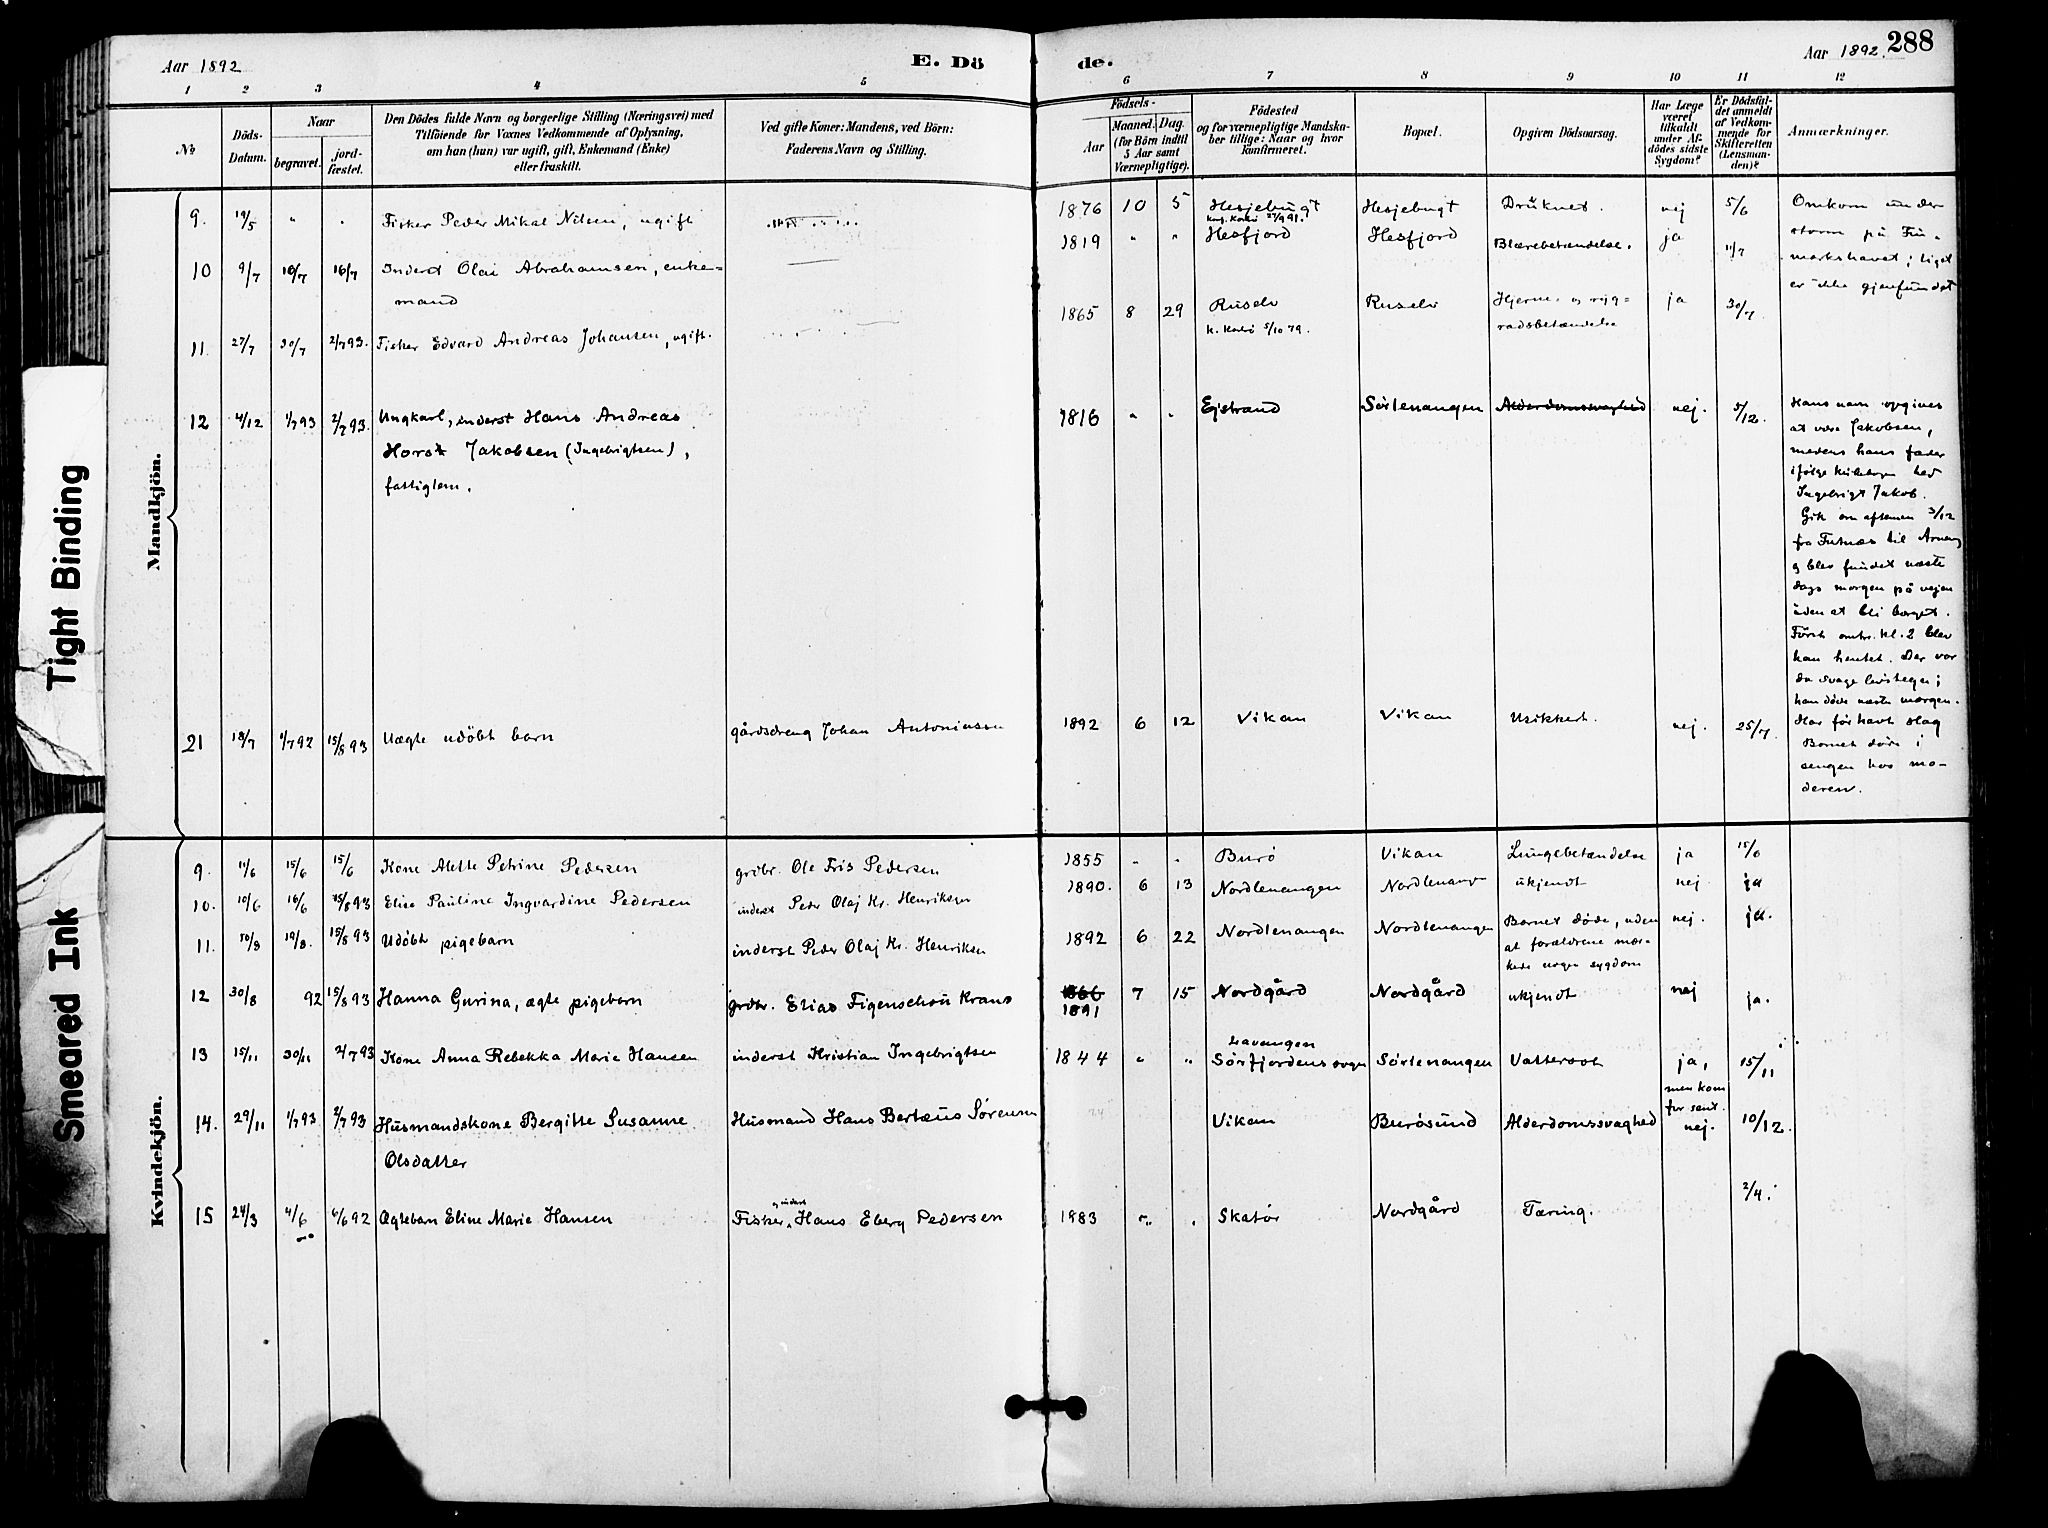 Aar 1892
E. Dö
de.
Aar 1892.
288
1 2 3 4 5 6 7 8 9 10 11 12
No
Döds-
Datum.
Naar
begravet.
jord-
fæstet.
Den Dödes fulde Navn og borgerlige Stilling (Næringsvei) med
Tilföiende for Voxnes Vedkommende af Oplysning,
om han (hun) var ugift, gift, Enkemand (Enke)
eller fraskilt.
Ved gifte Koner: Mandens, ved Börn:
Faderens Navn og Stilling.
Födsels-
Aar
Maaned.
Dag.
(for Börn indtil
5 Aar samt
Værnepligtige).
Födested
og for værnepligtige Mandska-
ber tillige: Naar og hvor
konfirmeret.
Bopæl.
Opgiven Dödsaarsag.
Har Læge
været
tilkaldt
under Af-
dödes sidste
Sygdom?
Er Dödsfal-
det anmeldt
af Vedkom-
mende for
Skifteretten
(Lensman-
den)?
Anmærkninger.
Mandkjön.
9. 19/5 " " Fisker Peder Mikal Nilsen, ugift
1876 10 5 Hesjebugt Hesjebugt Druknet. nej 5/6
10 9/7 16/7 16/7 Inderst Olai Abrahamsen, enke-
mand
1819 " " Hesfjord Hesfjord Blærebetændelse. ja 11/7
11. 27/7 30/7 2/7 93. Fisker Edvard Andreas Johansen, ugift.
1865 8 29 Ruselv Ruselv Hjerne- og ryg-
radsbetændelse ja 30/7
k. Karlsö 5/10 79.
Omkom under
storm på Fin-
markshavet; liget
er ikke gjenfundet
12 4/12 1/7 93 2/7 93. Ungkarl, inderst Hans Andreas
Horst Jakobsen (Ingebrigtsen),
fattiglem.
1816 " " Ejstrand Sørlenangen Alderdomssvaghed nej. 5/12.
Hans navn opgives
at være Jakobsen,
medens hans fader
ifølge kirkebogen hed
Ingebrigt Jakob.
Gik om aftenen 3/12
fra til
og blev fundet næste
dags morgen på vejen
uden at bli berget.
Først omtr. kl. 2 blev
han hentet. Der var
da svage livstegn;
han døde næste morgen.
Har før havt slag
21 18/7 1/7 92 15/8 93 Uægte udöbt barn gårdsdreng Johan Antoniussen
1892 6 12 Vikan Vikan Usikkert. nej. 25/7.
Barnet døde i
sengen hos mo-
deren.
Kvindekjön.
9. 11/6 15/6 15/6 Kone Alette Petrine Pedersen grdbr. Ole Fris Pedersen
1855 " " Burö Vikan Lungebetændelse ja 15/6
10. 10/6 16/6 15/8 93 Elise Pauline Ingvardine Pedersen inderst Peder Olaj Kr. Henriksen
1890. 6 13 Nordlenangen Nordlenang ukjendt nej ja
11. 10/8 19/8. 15/8 93 Udöbt pigebarn inderst Peder Olaj Kr. Henriksen
1892 6 22 Nordlenangen Nordlenangen Barnet døde, uden
at forældrene mær-
kede nogen sygdom nej. ja.
12 30/8 92 15/8 93 Hanna Gurina, ægte pigebarn grdbr. Elias Figenschou Kraus
1891 7 15 Nordgård Nordgård ukjendt nej ja.
13 15/11 30/11 2/7 93 Kone Anna Rebekka Marie Hansen inderst Kristian Ingebrigtsen
1844 " " Lavangen
Sørfjordens sogn Sørlenangen Vattersot ja,
men kom
for sent. 15/11
14. 29/11 1/7 93 2/7 93 Husmandskone Bergitte Susanne
Olsdatter
Husmand Hans Bertæus Sørensen
Vikan Burøsund Alderdomssvaghed nej. 10/12.
15 24/3 4/6 6/6 92 Ægtebarn Eline Marie Hansen Fisker og inderst Hans Eberg Pedersen
1983 " " Skatør Nordgård Tæring. 2/4.
Tight Binding
Smeared Ink